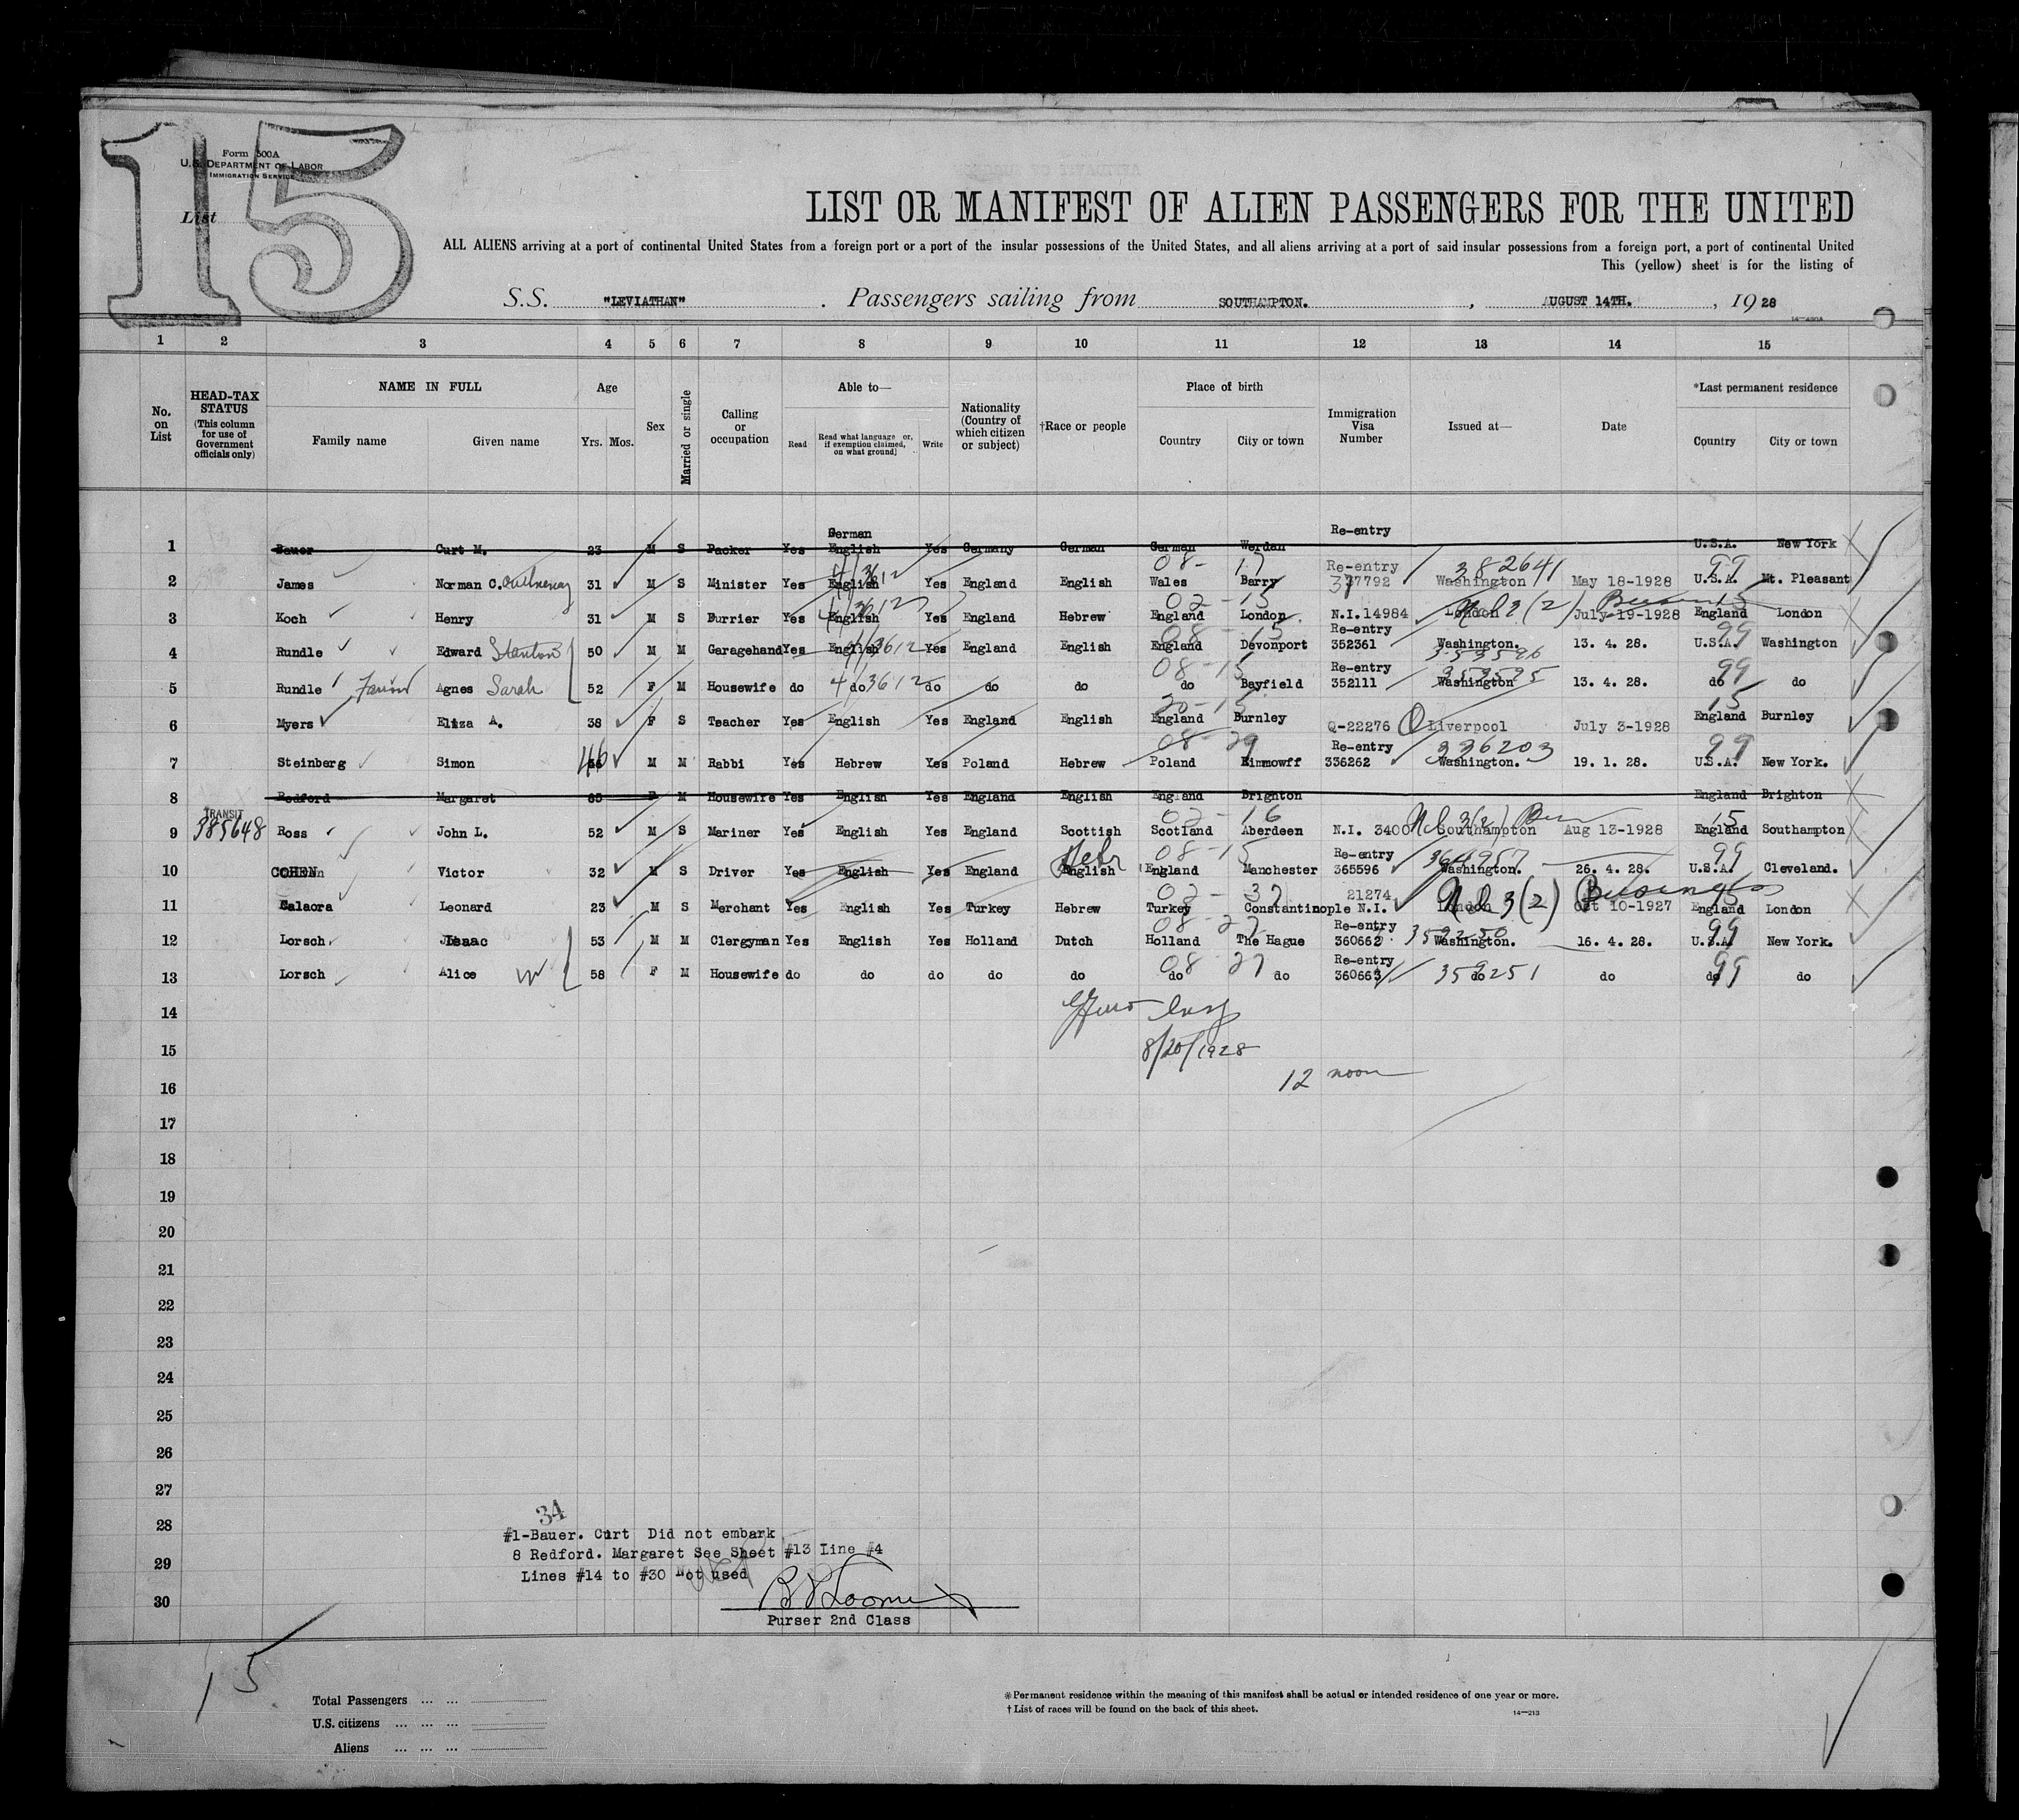 15
Form 500A
U.S. DEPARTMENT OF LABOR
IMMIGRATION SERVICE
List
LIST OR MANIFEST OF ALIEN PASSENGERS FOR THE UNITED
ALL ALIENS arriving at a port of continental United States from a foreign port or a port of the insular possessions of the United States, and all aliens arriving at a port of said insular possessions from a foreign port, a port of continental United
This (yellow) sheet is for the listing of
S.S. "LEVIATHAN" . Passengers sailing from SOUTHAMPTON. , AUGUST 14TH. , 19 28
1 2 3 4 5 6 7 8 9 10 11 12 13 14 15
No. on List
HEAD-TAX STATUS (This column for use of Government officials only)
NAME IN FULL
Family name Given name
Age
Yrs. Mos.
Sex
Married or single
Calling or occupation
Able to—
Read Read what language or, if exemption claimed, on what ground] Write
Nationality (Country of which citizen or subject)
†Race or people
Place of birth
Country City or town
Immigration Visa Number
Issued at—
Date
*Last permanent residence
Country City or town
1 Bauer Curt M. 23 M S Packer Yes German English Yes Germany German German Werdan Re-entry U.S.A. New York
08- 17 382641 99
2 James Norman C. 31 M S Minister Yes English Yes England English Wales Barry Re-entry 337792 Washington May 18-1928 U.S.A. Mt. Pleasant
02-15 15
3 Koch Henry 31 M S Furrier Yes English Yes England Hebrew England London. N.I.14984 London July-19-1928 England London
08-15 99
4 Rundle Edward Stanton 50 M M Garagehand Yes English Yes England English England Devonport Re-entry 352361 Washington. 13. 4. 28. U.S.A. Washington
08-15 353596 99
5 Rundle Agnes Sarah 52 F M Housewife do do do do do do Bayfield Re-entry 352111 Washington 13. 4. 28. do do
20-15 15
6 Myers Eliza A. 38 F S Teacher Yes English Yes England English England Burnley Q-22276 Liverpool July 3-1928 England Burnley
08-29 336203 99
7 Steinberg Simon 46 M M Rabbi Yes Hebrew Yes Poland Hebrew Poland Rimmowff Re-entry 336262 Washington. 19. 1. 28. U.S.A. New York.
8 Redford Margaret 65 F M Housewife Yes English Yes England English England Brighton England Brighton
TRANSIT
02-16 15
9 385648 Ross John L. 52 M S Mariner Yes English Yes England Scottish Scotland Aberdeen N.I. 3400 Southampton Aug 13-1928 England Southampton
Hebr 08-15 99
10 COHEN Victor 32 M S Driver Yes English Yes England English England Manchester Re-entry 365596 Washington. 26. 4. 28. U.S.A. Cleveland.
02-37 15
11 Calaora Leonard 23 M S Merchant Yes English Yes Turkey Hebrew Turkey Constantinople N.I. 21274 London Oct 10-1927 England London
08-27 359250 99
12 Lorsch Isaac 53 M M Clergyman Yes English Yes Holland Dutch Holland The Hague Re-entry 360662 Washington. 16. 4. 28. U.S.A New York.
08 27 359251 99
13 Lorsch Alice 58 F M Housewife do do do do do do do Re-entry 360663 do do do do
14
8/20/1928
15
12 noon
16
17
18
19
20
21
22
23
24
25
26
27
34
28 #1-Bauer. Curt Did not embark
8 Redford. Margaret See Sheet #13 Line #4
29 Lines #14 to #30 Not used
30
Purser 2nd Class
15
Total Passengers ... ...
U.S. citizens ... ... ...
Aliens ... ... ...
*Permanent residence within the meaning of this manifest shall be actual or intended residence of one year or more.
†List of races will be found on the back of this sheet.
14—213